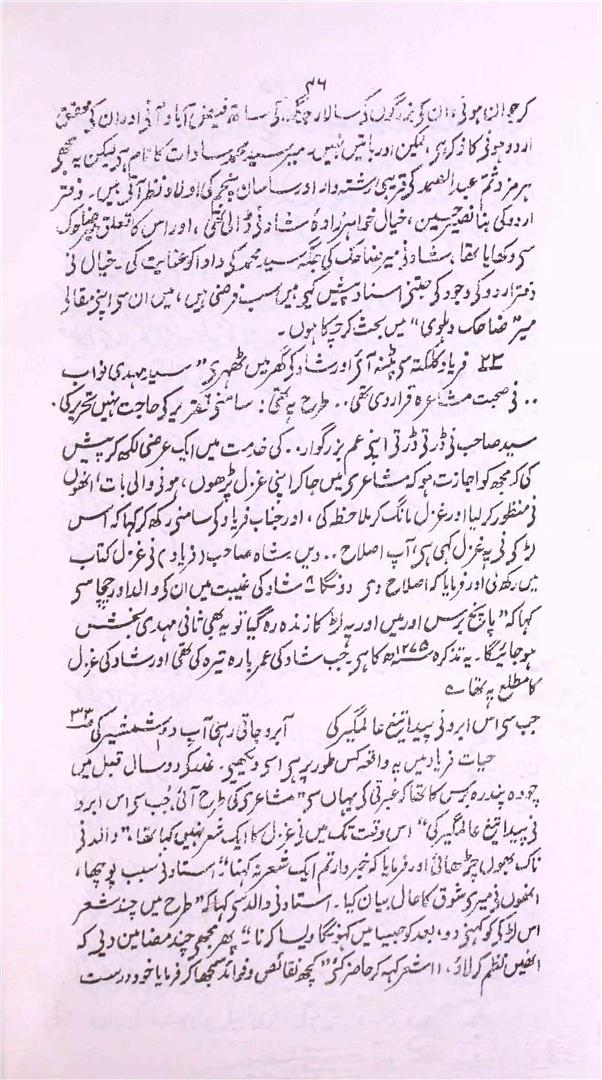 ۴۶
کر جوان ہوئی، ان کی بزرگوں کی سالار جنگ کی ساتھ فیض آباد آنی اور ان کی محقق
اردو ہونی کا ذکر ہی، لیکن اور باتیں نہیں۔ میر سید محمد سادات کا نام ہی لیکن یہ بھی
ہرمزد ثم عبد الصمد کی قریبی رشتہ دار اور ساسان پنجم کی اولاد نظر آتی ہیں۔ دفتر
اردو کی بنا نصیر حسین، خیال خواہر زادۂ شاد نی ڈالی تھی، اور اس کا تعلق
سی دکھایا تھا، شاد نی میر ضاحک کی جگہ سید محمد کی دادا کو عنایت کی۔ خیال نی
دفتر اردو کی وجود کی جتنی اسناد پیش کیں ہیں سب فرضی ہیں، میں ان سی اپنی مقالی
"میر ضاحک دہلوی" میں بحث کر چکا ہوں۔
۲۲ فریاد کلکتہ سی پٹنہ آئ اور شاد کی گھر میں ٹھہری "سید مہدی نواب
.. نی صحبت مشاعرہ قرار دی تھی.. طرح یہ تھی: سامنی تقریر کی حاجت نہیں تحریر کی.
سید صاحب نی ڈرتی ڈرتی اپنی عم بزرگوار .. کی خدمت میں ایک عرضی لکھ کر پیش
کی کہ مجھ کو اجازت ہو کہ مشاعری میں جا کر اپنی غزل پڑھوں، ہونی والی بات، انھوں
نی منظور کر لیا اور غزل مانگ کر ملاحظہ کی، اور جناب فریاد کی سامنی رکھ کر کہا کہ اس
لڑکی نی یہ غزل کہی ہی، آپ اصلاح .. دیں شاہ صاحب (فریاد) نی غزل کتاب
میں رکھ لی اور فرمایا کہ اصلاح دی دونگا" شاد کی غیبت میں ان کی والد اور چچا سی
کہا کہ "پانچ برس اور میں اور یہ لڑکا زندہ رہ گیا تو یہ بھی ثانی مہدی بخش
ہو جائیگا۔ یہ تذکرہ ۱۲۷۵ھ کا ہی جب شاد کی عمر بارہ تیرہ کی تھی اور شاد کی غزل
کا مطلع یہ تھا ؎
جب سی اس ابرو نی پیدا تیغ عالمگیر کی آبرو جاتی رہی آپ دم شمشیر کی ۳۳
حیات فریاد میں یہ واقعہ کس طور پر ہی اسی دیکھیی۔ غدر کی دو سال قبل میں
چودہ پندرہ برس کا تھا کہ عبرتی کی یہاں سی "مشاعری کی طرح آئی، جب سی اس ابرو
نی پیدا تیغ عالمگیر کی" اس وقت تک میں نی غزل کا ایک شعر نہیں کہا تھا، "والد نی
ناک بھوں چڑھائی اور فرمایا کہ خبردار تم ایک شعر نہ کہنا": استاد نی سبب پوچھا،
انھوں نی میری شوق کا حال بیان کیا۔ استاد نی والد سی کہا کہ "طرح میں چند شعر
اس لڑکی کو کہنی دو، بعد کو جیسا میں کہونگا ویسا کرنا": پھر مجھی چند مضامین دیی کہ
انھیں نظم کر لاؤ، ۱۱ شعر کہہ کر حاضر کئی "کچھ نقائص و فوائد سمجھا کر فرمایا خود درست